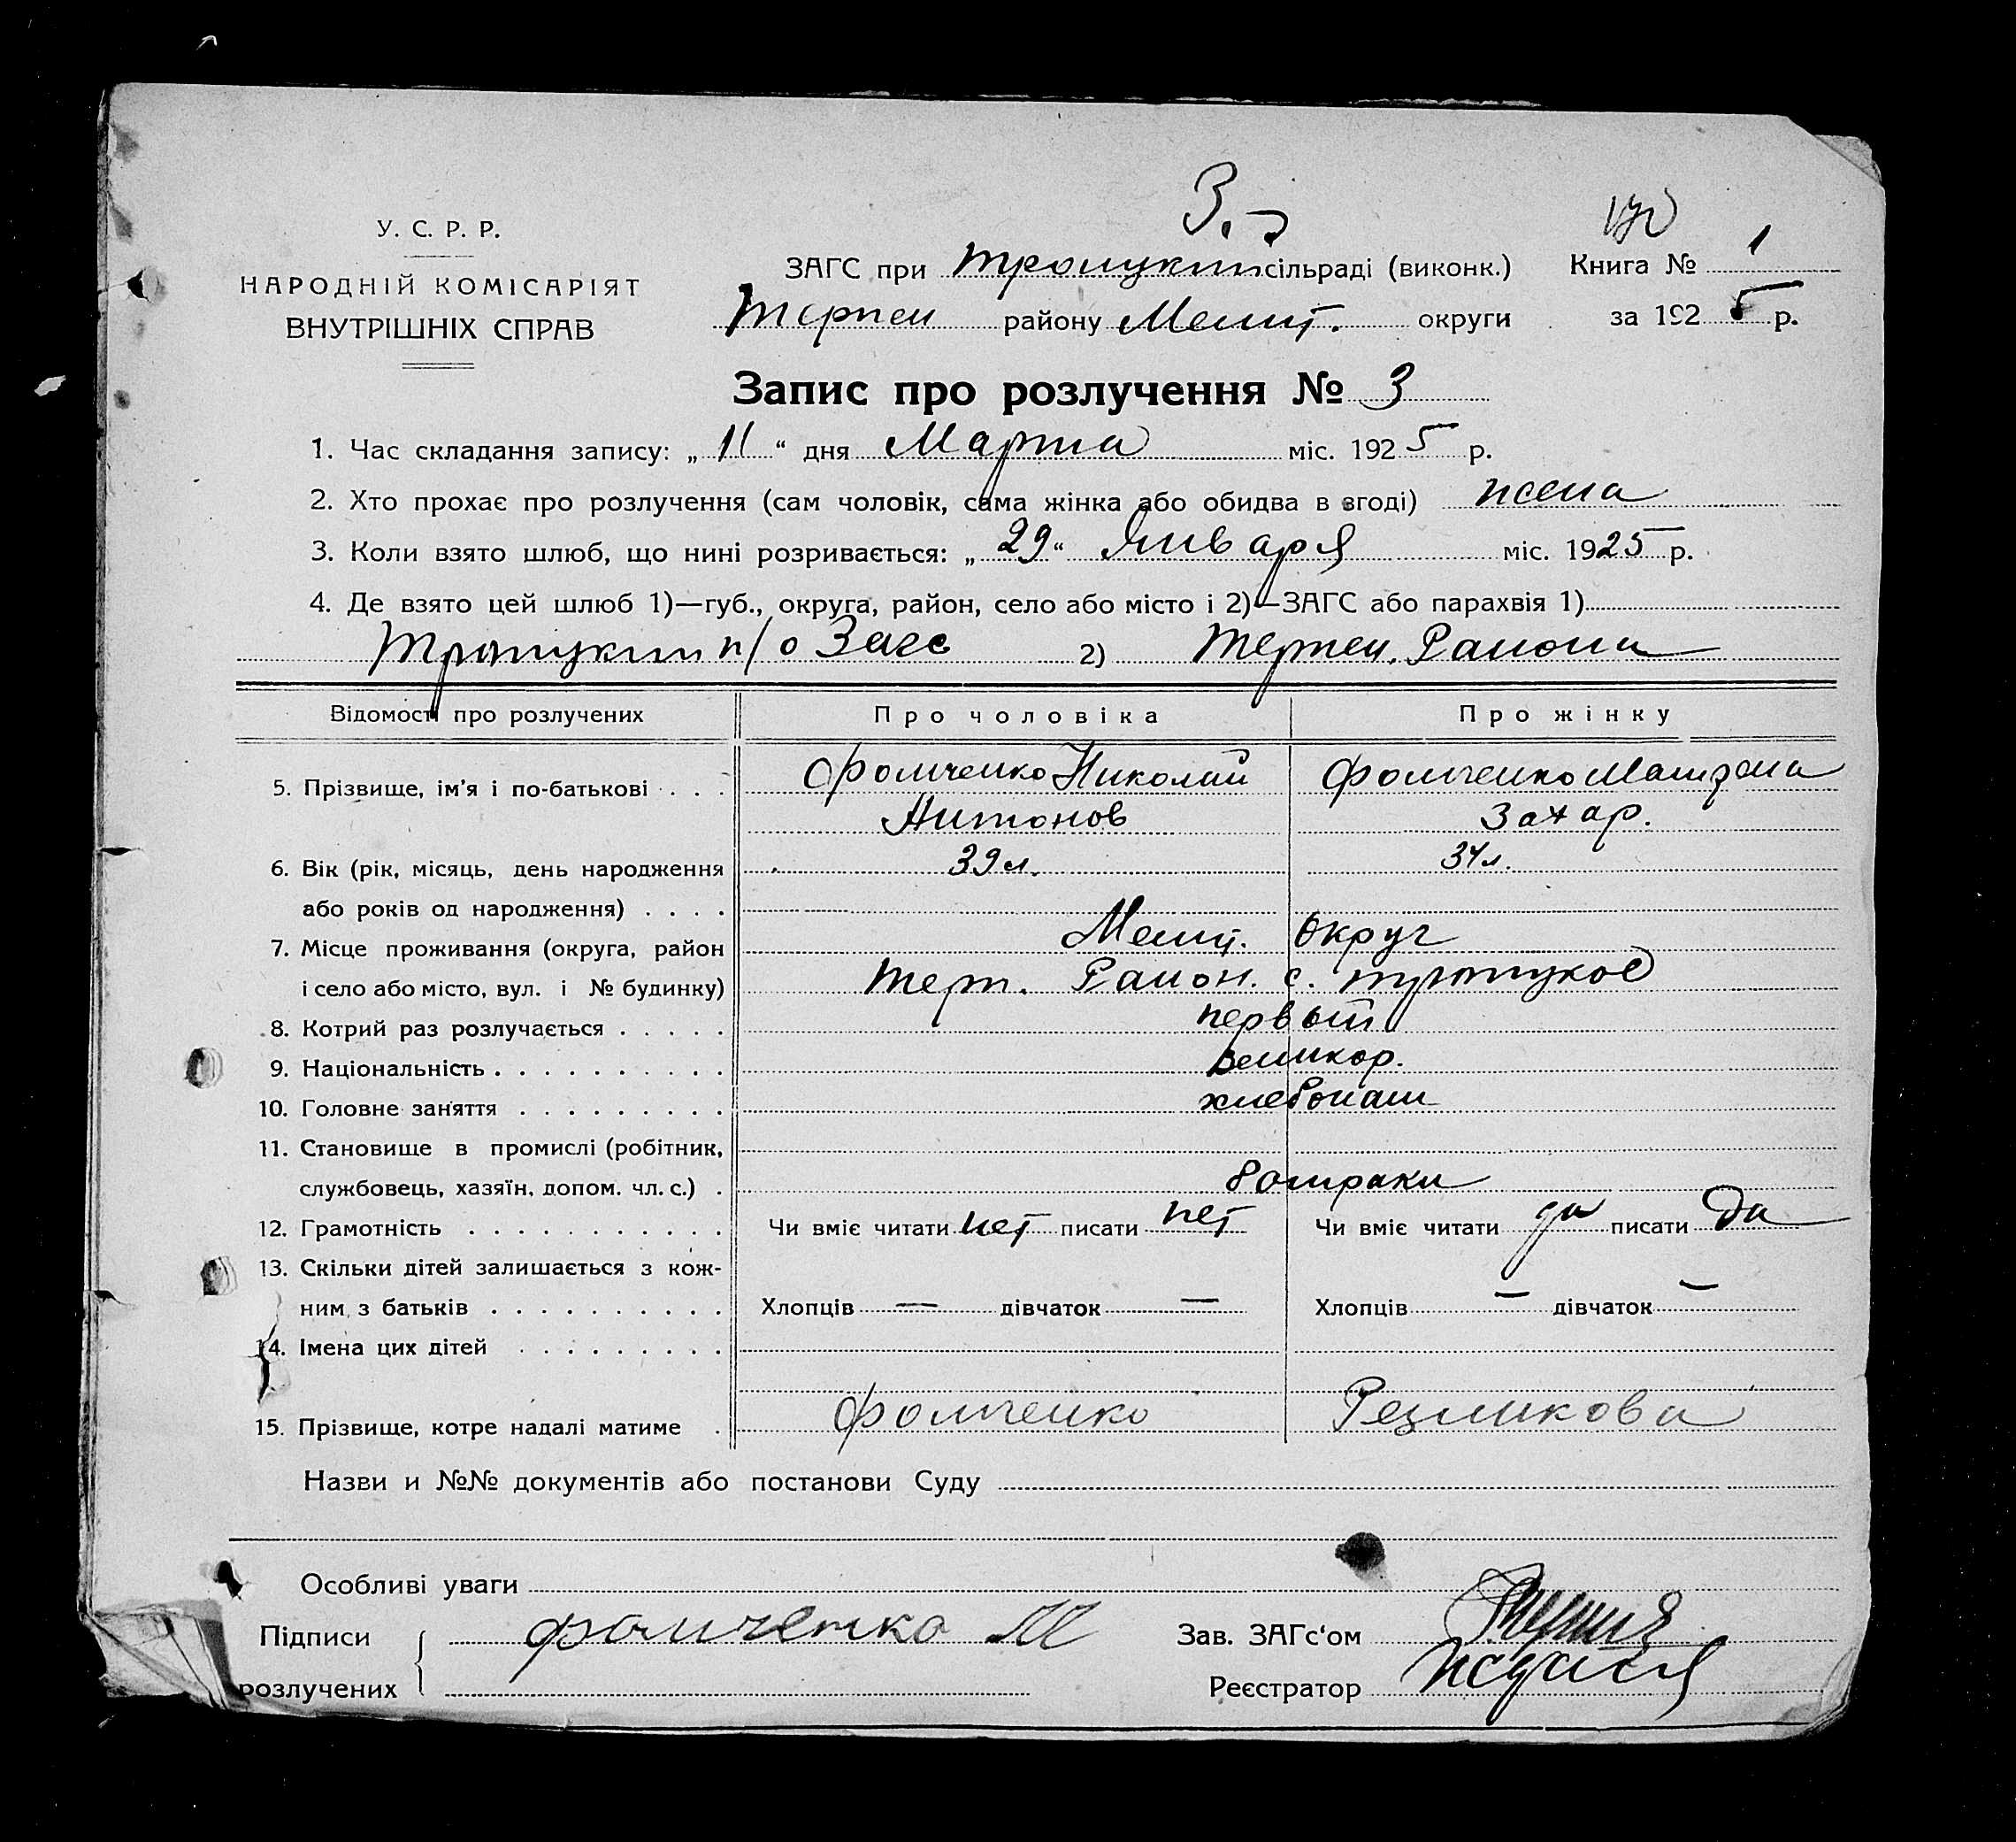 3.
У. С. Р. Р.
НАРОДНІЙ КОМІСАРІЯТ
ВНУТРІШНІХ СПРАВ
ЗАГС при Троицким сільраді (виконк.) Книга № 1
Терпен району Мелит. округи за 1925 р.
Запис про розлучення № 3
1. Час складання запису: „ 11 “ дня Марта міс. 1925 р.
2. Хто прохає про розлучення (сам чоловік, сама жінка або обидва в згоді) жена
3. Коли взято шлюб, що нині розривається: „ 29 “ Января міс. 1925 р.
4. Де взято цей шлюб 1)—губ., округа, район, село або місто і 2)—ЗАГС або парахвія 1)
Троицким п/о Загс 2) Терпен. Района
Відомості про розлучених Про чоловіка Про жінку
5. Прізвище, ім’я і по-батькові . . . Фомченко Николай Фомченко
Антонов Захар.
6. Вік (рік, місяць, день народження 39 л. 34 л.
або років од народження) . . . .
7. Місце проживання (округа, район Мелит. Округ
і село або місто, вул. і № будинку) Терп. Район. с. Троицкое
8. Котрий раз розлучається . . . . . первый
9. Національність . . . . . . . . . . великор.
10. Головне заняття . . . . . . . . . хлебопаш
11. Становище в промислі (робітник,
службовець, хазяїн, допом. чл. с.) . батраки
12. Грамотність . . . . . . . . . . . Чи вміє читати нет писати нет Чи вміє читати да писати Да
13. Скільки дітей залишається з кож-
ним з батьків . . . . . . . . . . Хлопців — дівчаток — Хлопців — дівчаток —
14. Імена цих дітей . . . . . . . . .
15. Прізвище, котре надалі матиме . Фомченко Резникова
Назви и №№ документів або постанови Суду
Особливі уваги
Підписи Фомченко М Зав. ЗАГс‘ом
розлучених Реєстратор